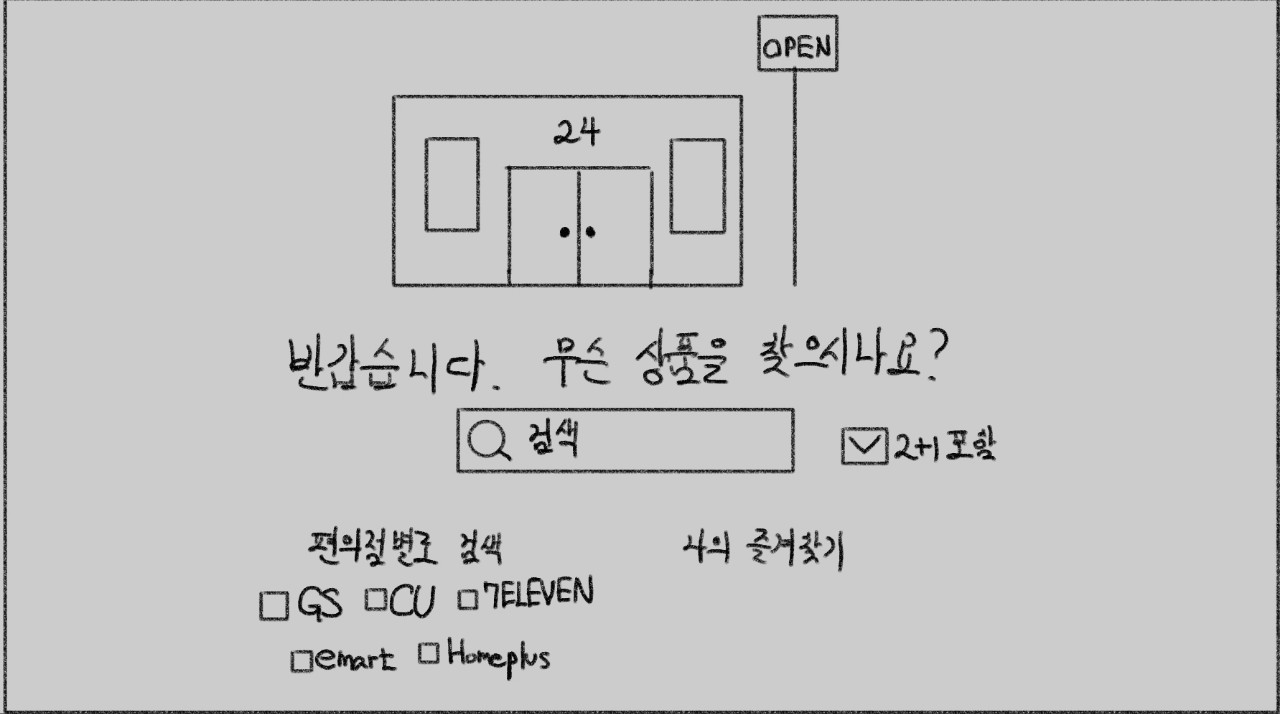 OPEN
24
반갑습니다. 무슨 상품을 찾으시나요?
검색
2+1 포함
편의점별로 검색
나의 즐겨찾기
GS CU 7ELEVEN
emart Homeplus